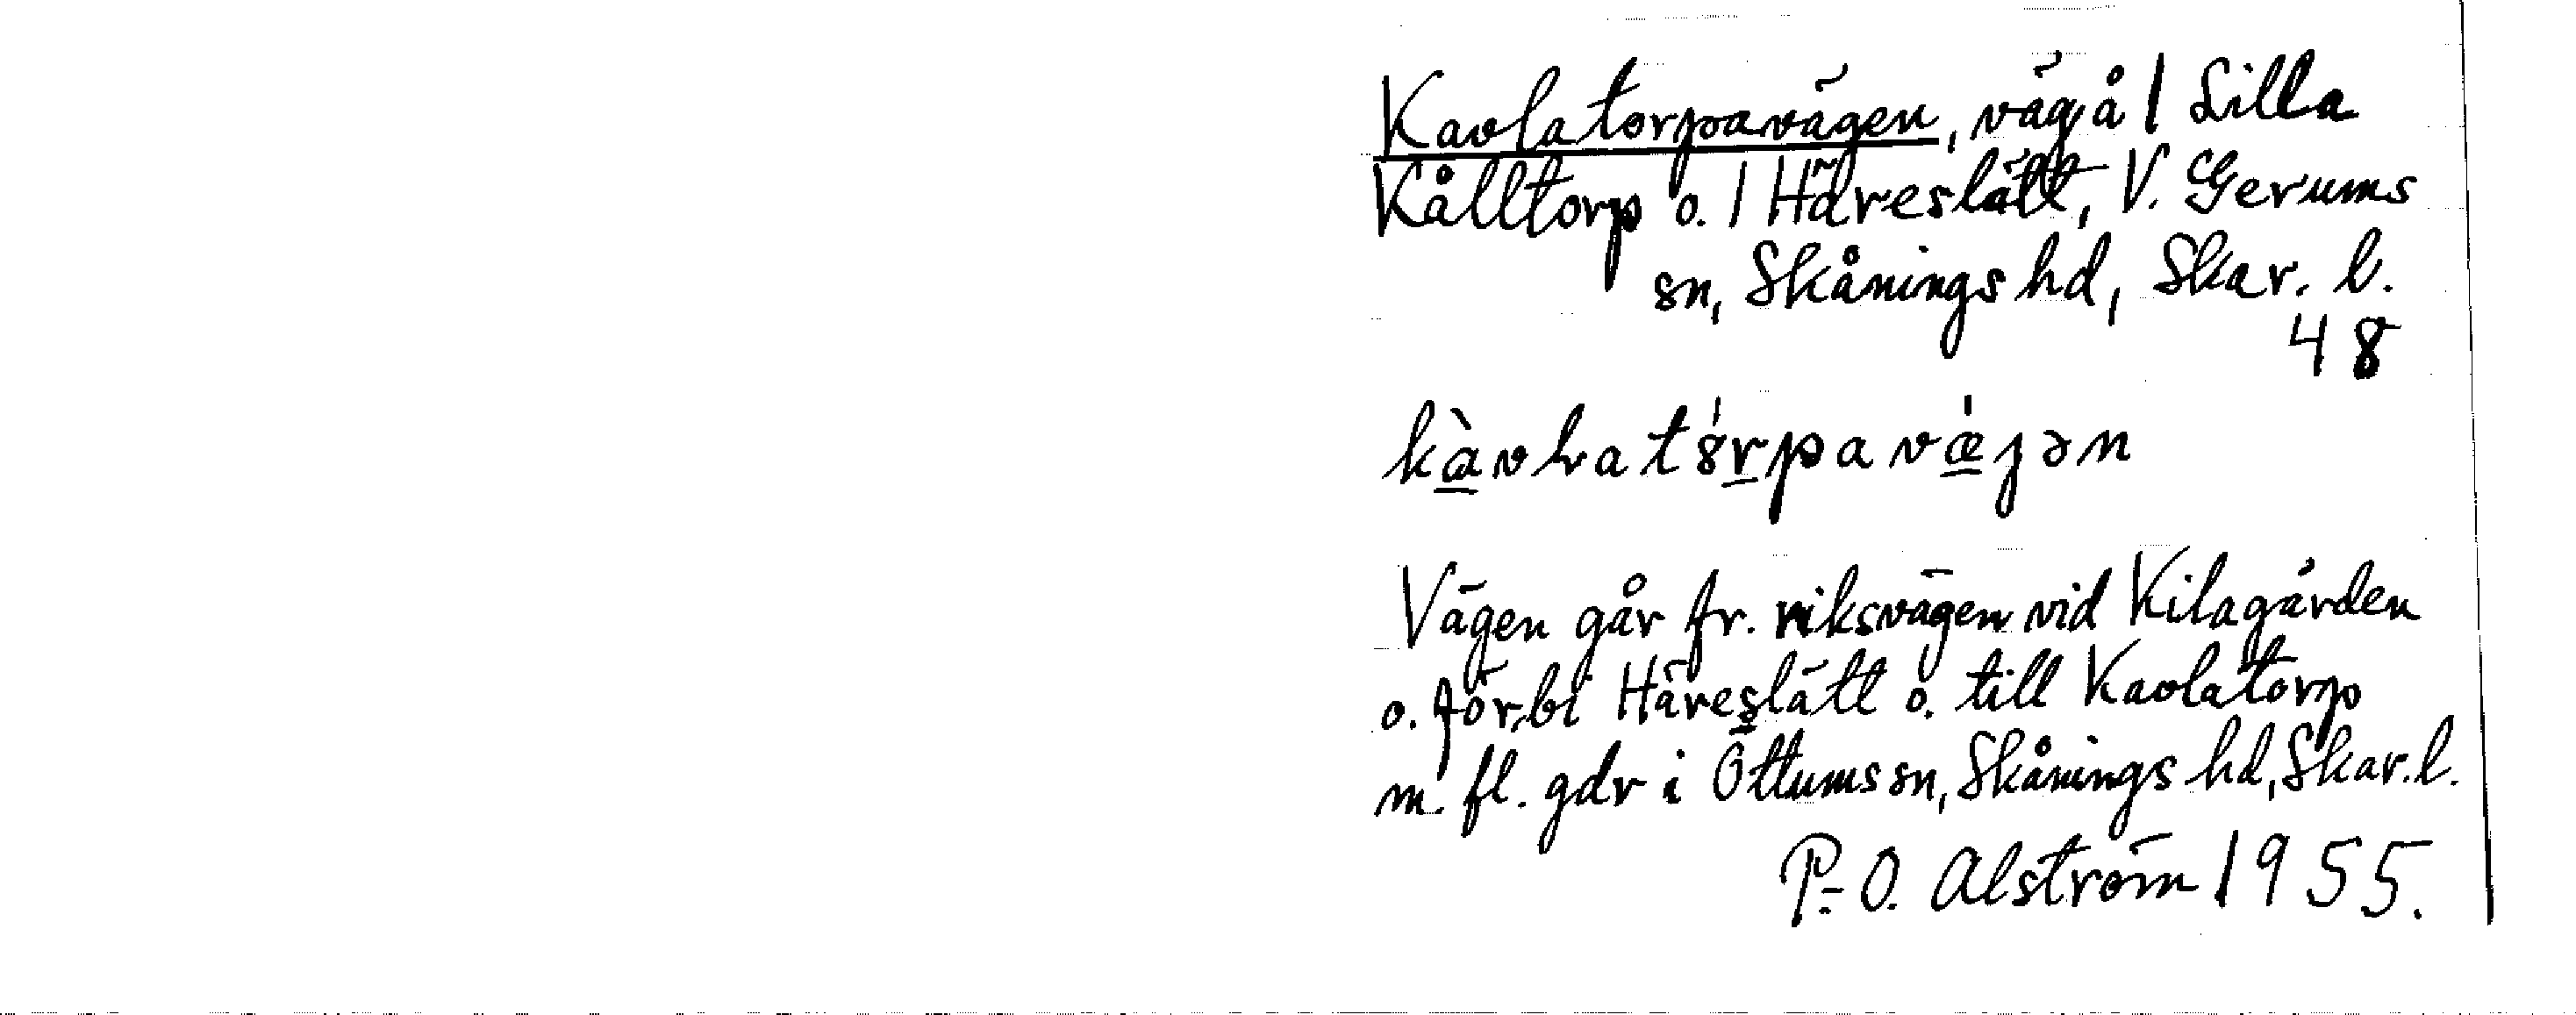 Kavlatorpavägen, väg å 1 Lilla
Kålltorp o. 1 Häreslätt, V. Gerums
sn, Skånings hd, Skar. l.
48
Vägen går fr. riksvägen vid Kilagården
o. förbi Häreslätt o. till Kavlatorp
m. fl. gdr i Öttums sn, Skånings hd, Skar. l.
P.-O. Alström 1955.